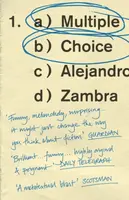 1. a) Multiple
b) Choice
c) Alejandro
d) Zambra
'Funny, melancholy, surprising
it might just change the way
you think about fiction' GUARDIAN
'Brilliant funny highly original
& poignant' DAILY TELEGRAPH
'A masterful blast' SCOTSMAN